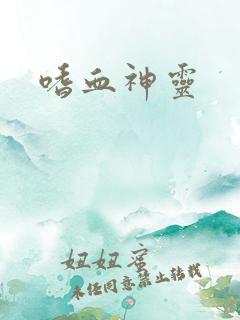 嗜血神靈
妞妞蜜
未任同意禁止转载